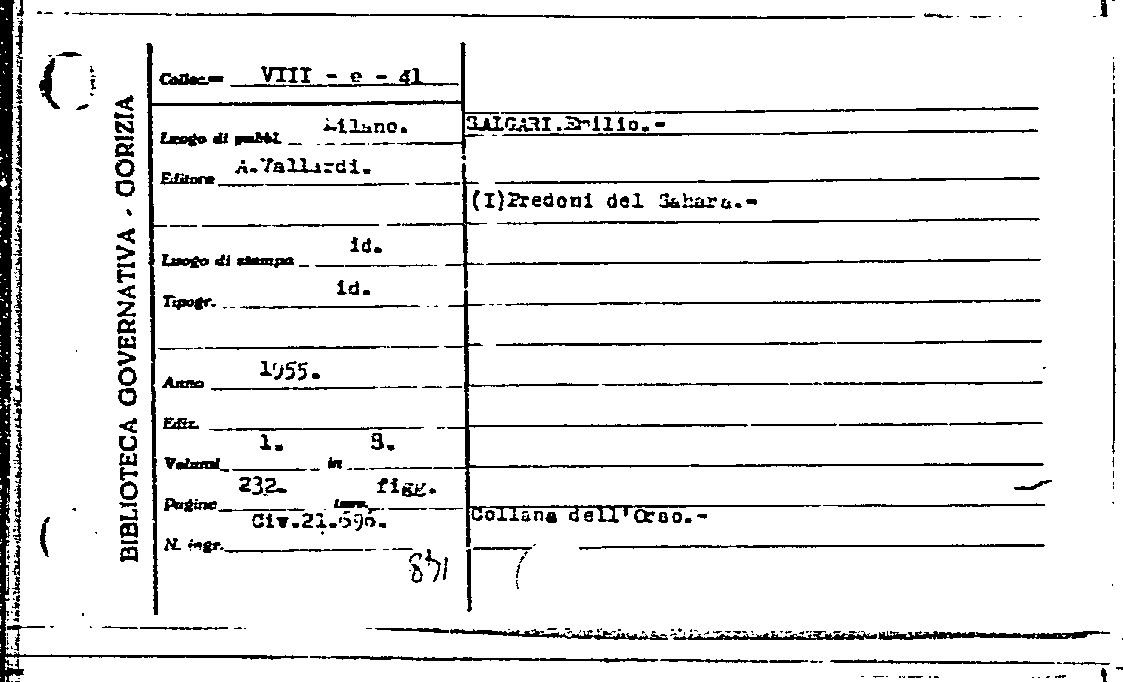 BIBLIOTECA GOVERNATIVA - GORIZIA
Colloc.— VIII - e - 41
Luogo di pubbl. Milano.
Editore A.Vallardi.
Luogo di stampa id.
Tipogr. id.
Anno 1955.
Ediz.
Volumi 1. in 8.
Pagine 232. tavv. figg.
N. ingr. Civ.21.696.
148
SALGARI.Emilio.-
(I)Predoni del Sahara.-
Collana dell'Orso.-